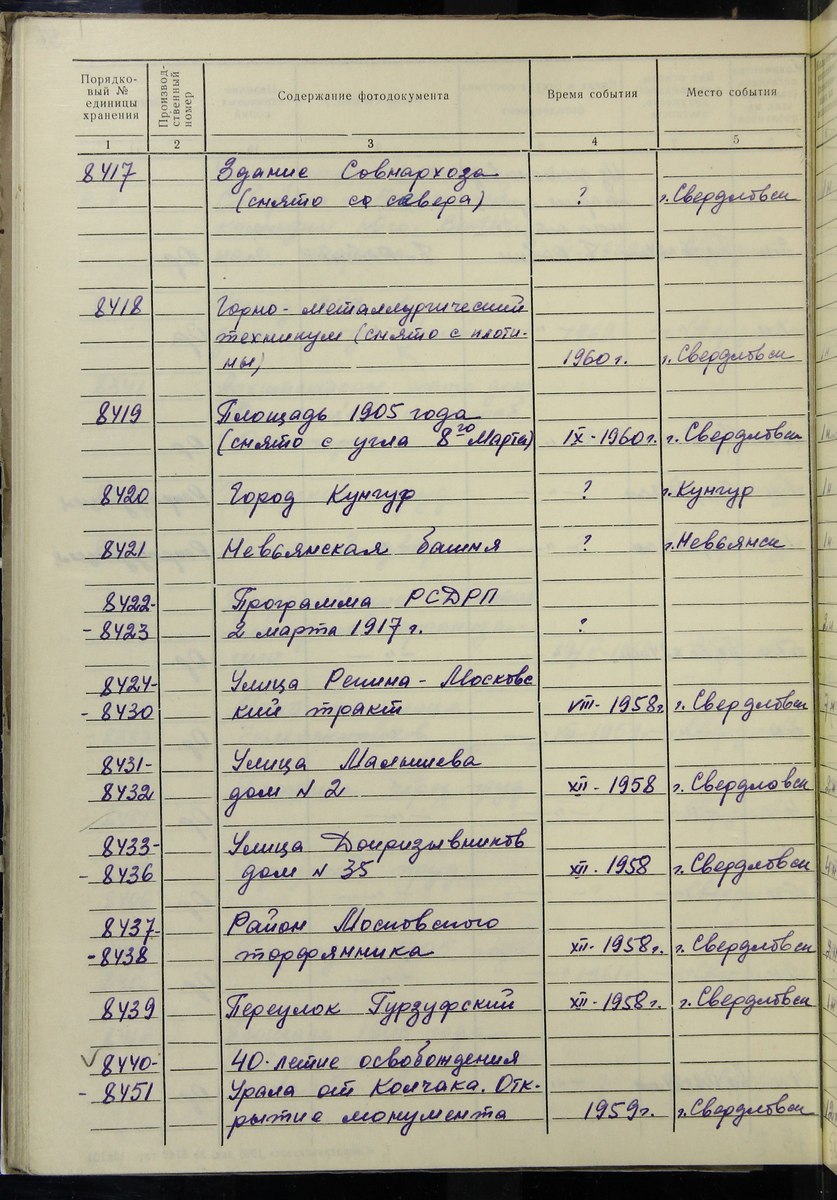 Порядко-
вый №
единицы
хранения
Производ-
ственный
номер
Содержание фотодокумента
Время события
Место события
1 2 3 4 5
8417 Здание Совнархоза
(снято со севера) ? г. Свердловск
8418 Горно-металлургический
техникум (снято с плоти-
ны) 1960 г. г. Свердловск
8419 Площадь 1905 года
(снято с угла 8го Марта) IX-1960 г. г. Свердловск
8420 Город Кунгур ? г. Кунгур
8421 Невьянская башня ? г. Невьянск
8422- Программа РСДРП
-8423 2 марта 1917 г. ?
8424- Улица Репина - Московс
-8430 кий тракт VIII-1958 г г. Свердловск
8431- Улица Малышева
8432 дом N 2 XII-1958 г. Свердловск
8433- Улица Допризывников
-8436 дом N 35 XII-1958 г. Свердловск
8437- Район Московского
-8438 торфянника XII-1958 г. г. Свердловск
8439 Переулок Гурзуфский XII-1958 г. г. Свердловск
8440- 40-летие освобождения
-8451 Урала от Колчака. Отк-
рытие монумента 1959 г. г. Свердловск